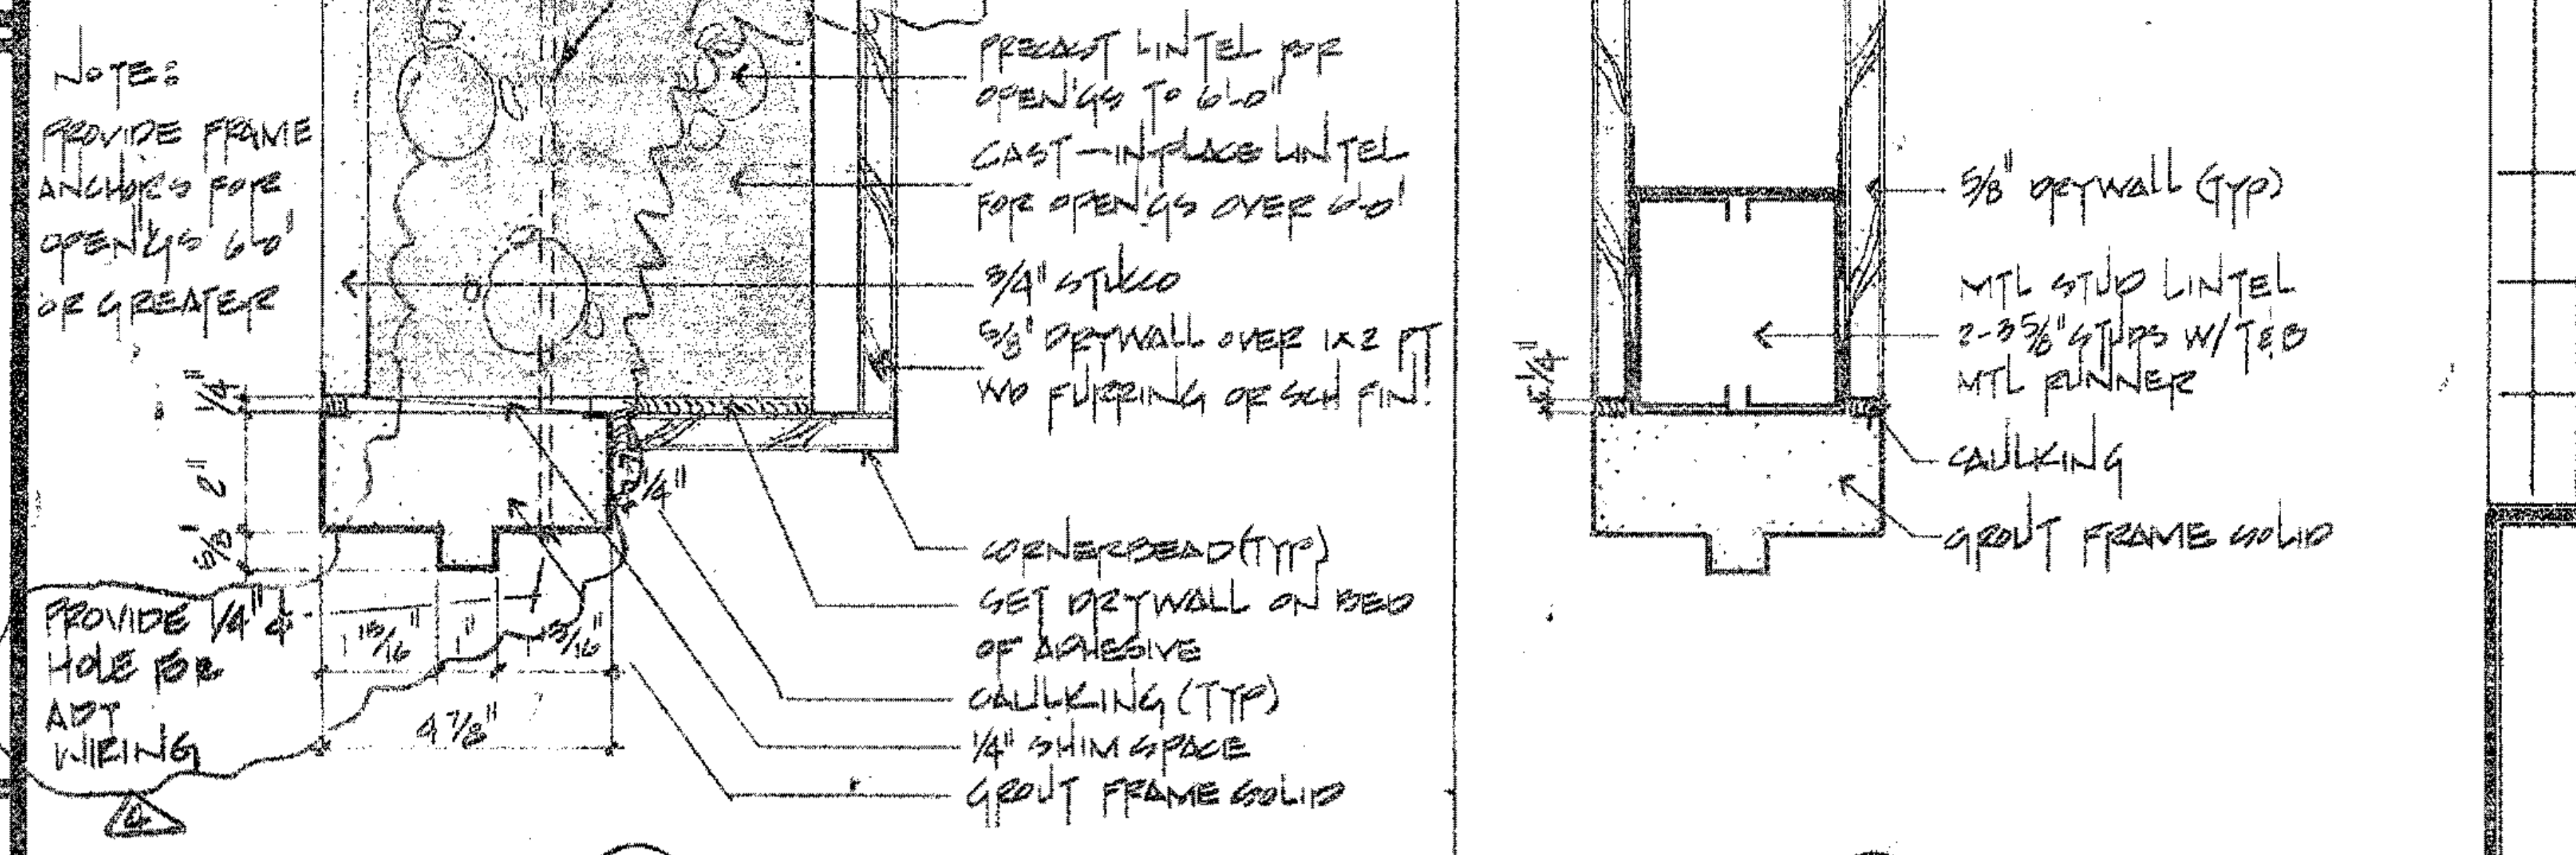 NOTE:
PROVIDE FRAME
ANCHORS FOR
OPEN'GS 6'-0"
OR GREATER
1/4"
2"
5/8"
PROVIDE 1/4" ⌀
HOLE FOR
ADT
WIRING
4
1 15/16"
1"
1 15/16"
4 7/8"
1/4"
PRECAST LINTEL FOR
OPEN'GS TO 6'-0"
CAST-IN-PLACE LINTEL
FOR OPEN'GS OVER 6'-0"
3/4" STUCCO
5/8" DRYWALL OVER 1X2 PT
WD FURRING OR SCH FIN!
CORNERBEAD (TYP)
SET DRYWALL ON BED
OF ADHESIVE
CAULKING (TYP)
1/4" SHIM SPACE
GROUT FRAME SOLID
5/8" DRYWALL (TYP)
MTL STUD LINTEL
2-3 5/8" STUDS W/ T&B
MTL RUNNER
CAULKING
GROUT FRAME SOLID